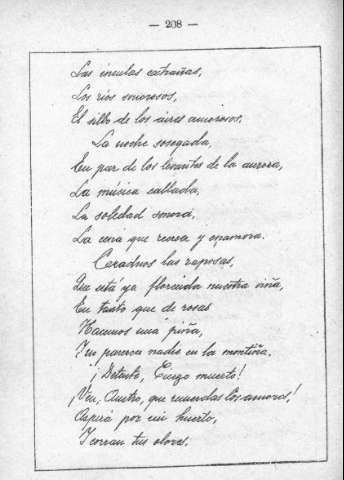 — 208 —
Las ínsulas extrañas,
Los ríos sonorosos,
El silbo de los aires amorosos,
La noche sosegada,
En par de los levantes de la aurora,
La música callada,
La soledad sonora,
La cena que recrea y enamora.
Cazadnos las raposas,
Que está ya florecida nuestra viña,
En tanto que de rosas
Hacemos una piña,
Y no parezca nadie en la montiña.
¡Detente, Cierzo muerto!
¡Ven, Austro, que recuerdas los amores!
Aspira por mi huerto,
Y corran tus olores,